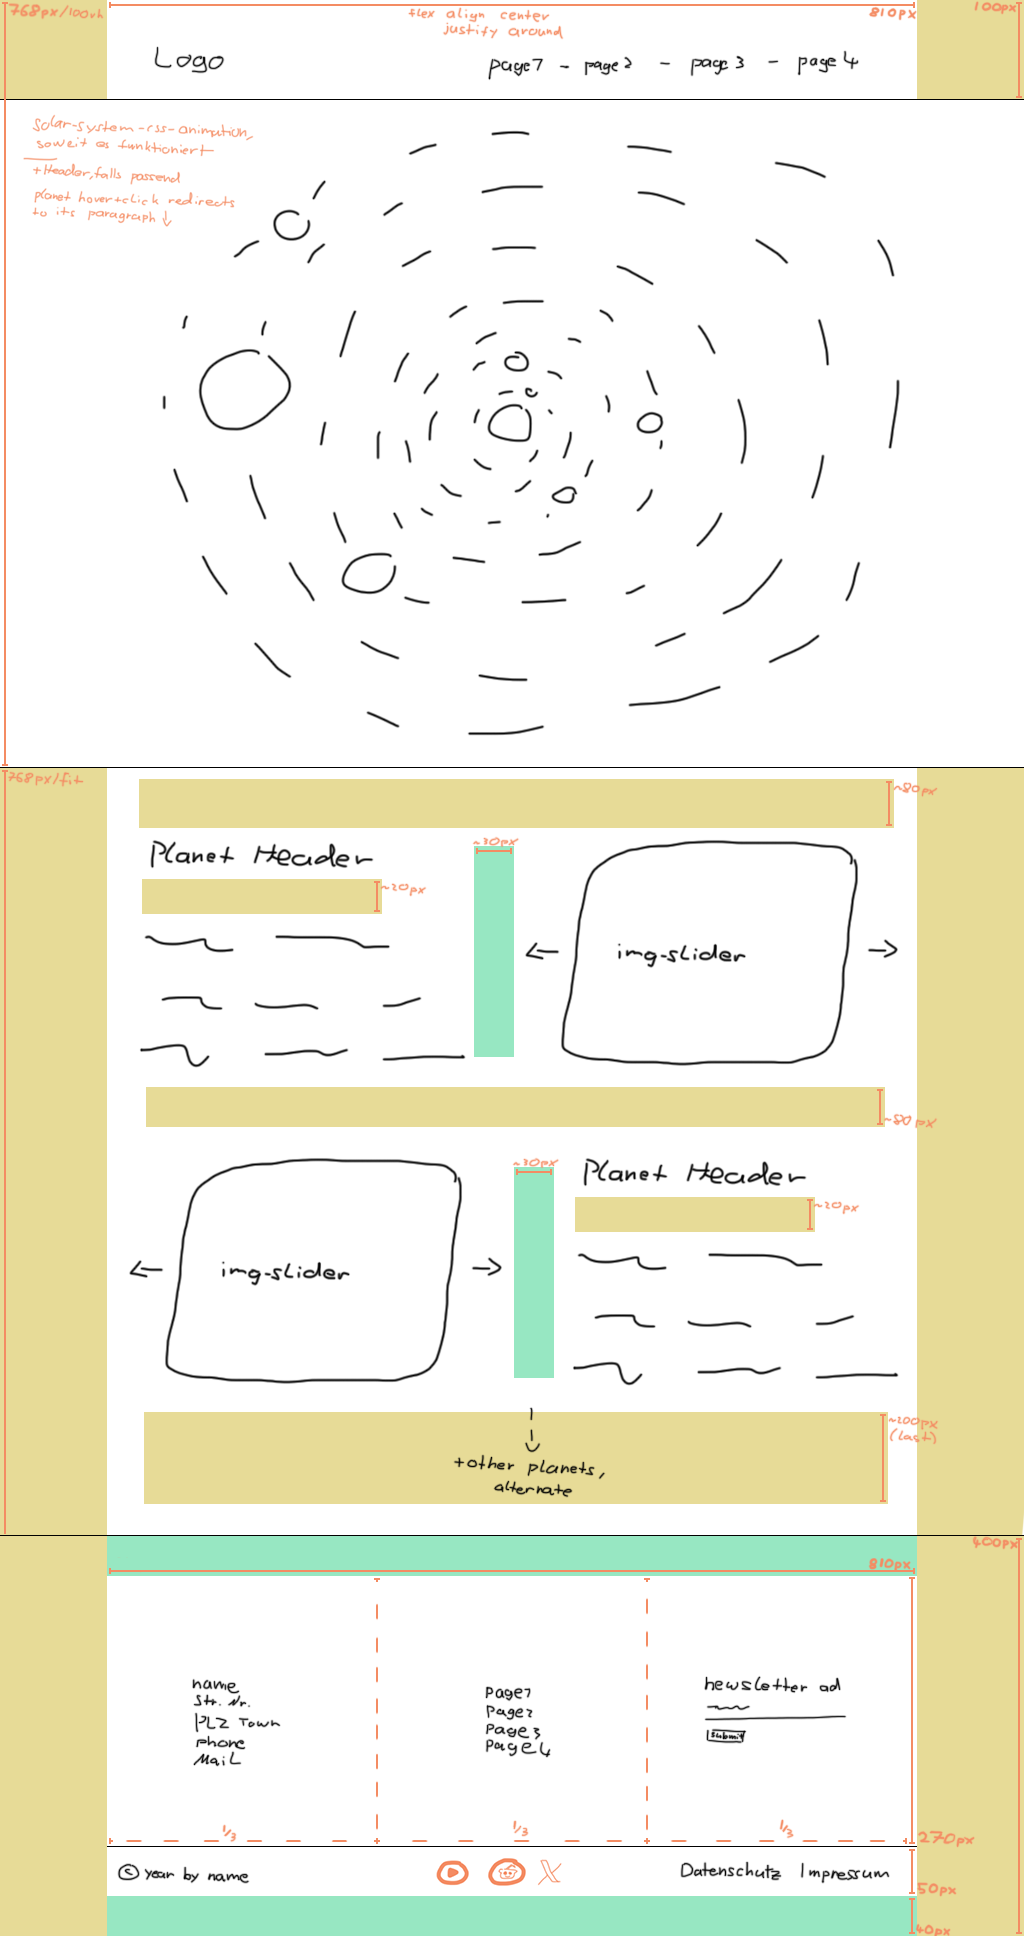 768px/100vh
flex align center
justify around
810px
100px
Logo
page1 - page2 - page3 - page4
Solar-system-css-animation,
soweit es funktioniert
+Header, falls passend
planet hover+click redirects
to its paragraph ↓
768px/fit
~80px
Planet Header
~30px
~20px
← img-slider →
~80px
~30px
Planet Header
~20px
← img-slider →
~200px
(last)
+other planets,
alternate
400px
810px
name
Str. Nr.
PLZ Town
phone
Mail
Page1
Page2
Page3
Page4
newsletter ad
submit
1/3
1/3
1/3
270px
© year by name
Datenschutz Impressum
50px
40px